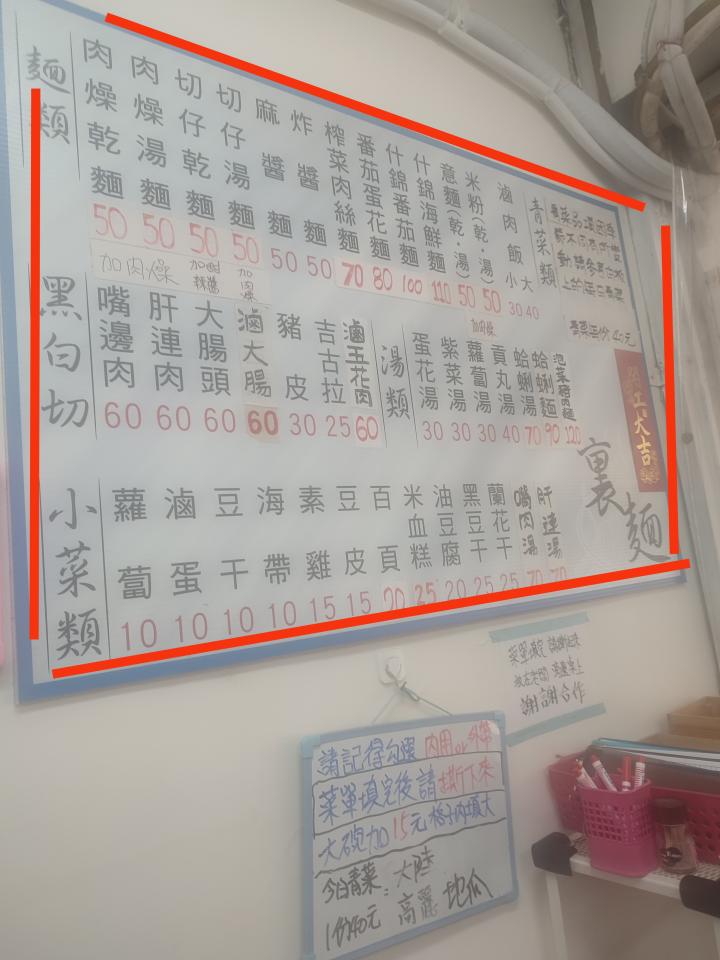 麵類
肉燥乾麵 50
肉燥湯麵 50
切仔乾麵 50
切仔湯麵 50
麻醬麵 50
炸醬麵 50
榨菜肉絲麵 70
番茄蛋花麵 80
什錦番茄麵 100
什錦海鮮麵 110
意麵(乾·湯) 50
米粉(乾·湯) 50
滷肉飯 小30 大40
加肉燥
加肉燥
加肉燥
青菜類
黑白切
嘴邊肉 60
肝連肉 60
大腸頭 60
滷大腸 60
豬皮 30
吉古拉 25
滷五花肉 60
湯類
蛋花湯 30
紫菜湯 30
蘿蔔湯 30
貢丸湯 40
蛤蜊湯 70
蛤蜊麵 90
120
小菜類
蘿蔔 10
滷蛋 10
豆干 10
海帶 10
素雞 15
豆皮 15
百頁 20
米血糕 25
油豆腐 20
黑豆干 25
蘭花干 25
嘴肉湯 70
肝連湯 70
裏麵
開工大吉
菜單填完 請撕下來
放在老闆 旁邊桌上
謝謝合作
請記得勾選 內用or外帶
菜單填完後請撕下來
大碗加15元 格子內填大
今日青菜:大陸
1份40元 高麗 地瓜